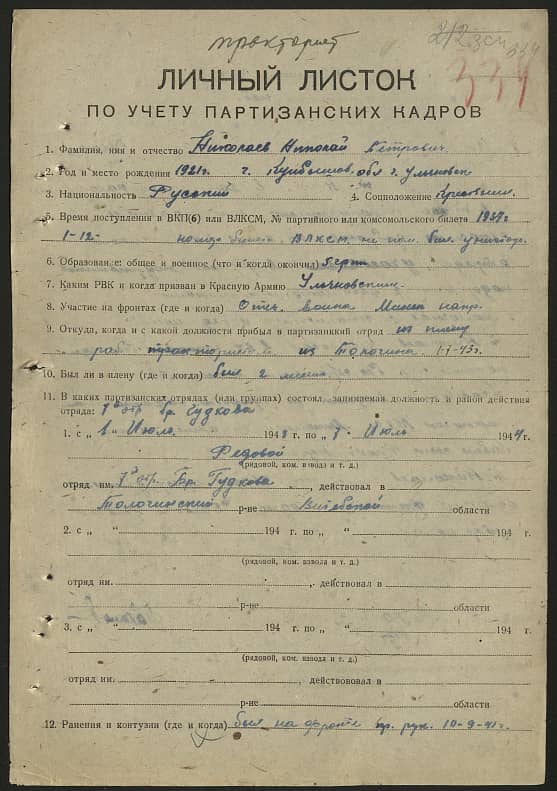 212
334
ЛИЧНЫЙ ЛИСТОК
ПО УЧЕТУ ПАРТИЗАНСКИХ КАДРОВ
1. Фамилия, имя и отчество Николаев Николай Петрович
2. Год и место рождения 1921г. г. Куйбышев. обл г. Ульяновск
3. Национальность Русский 4. Соцположение Крестьянин
5. Время поступления в ВКП(б) или ВЛКСМ, № партийного или комсомольского билета 1937г
1-12- номера билета ВЛКСМ не пом. был
6. Образование: общее и военное (что и когда окончил)
7. Каким РВК и когда призван в Красную Армию Ульяновским
8. Участие на фронтах (где и когда) Отеч. война Минск напр.
9. Откуда, когда и с какой должности прибыл в партизанский отряд из плену
раб из Толочина 1-7-43г.
10. Был ли в плену (где и когда) был 2 месяца
11. В каких партизанских отрядах (или группах) состоял, занимаемая должность и район действия
отряда: 7й отр бр. Гудкова
1. с „1 „ Июля 1943 г. по „7 „ Июль 1944 г.
Редовой
(рядовой, ком. взвода и т. д.)
отряд им. 7й отр. Бр. Гудкова, действовал в
Толочинский р-не Витебской области
2. с „ „ 194 г. по „ „ 194 г.
(рядовой, ком. взвода и т. д.)
отряд им. , действовал в
р-не области
3. с „ „ 194 г. по „ „ 194 г.
(рядовой, ком. взвода и т. д.)
отряд им. , действовал в
р-не области
12. Ранения и контузии (где и когда) был на фронте пр. рук. 10-9-41г.